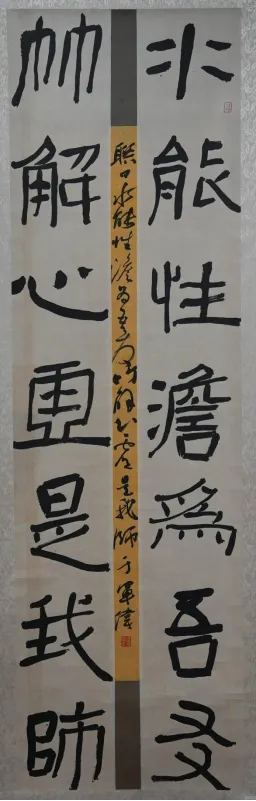 水能性澹爲吾友
竹解心虛是我師
聯曰水能性澹为吾友竹解心虚是我師于軍偉